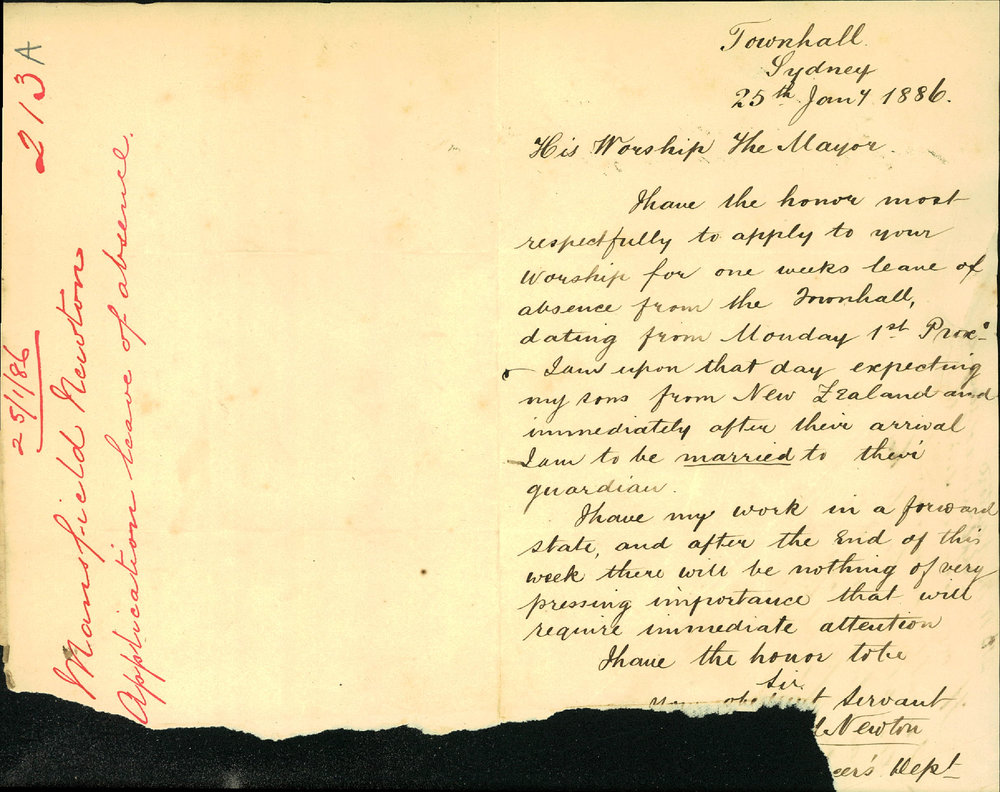 213A
25/1/86
Mansfield Newton
Application leave of absence.
Townhall.
Sydney
25th Jany 1886.
His Worship The Mayor.
I have the honor most
respectfully to apply to your
Worship for one weeks leave of
absence from the Townhall,
dating from Monday 1st Proxo
– I am upon that day expecting
my sons from New Zealand and
immediately after their arrival
I am to be married to their
guardian.
I have my work in a forward
state, and after the End of this
week there will be nothing of very
pressing importance that will
require immediate attention
I have the honor to be
Sir
Servant
d Newton
eer's Dept